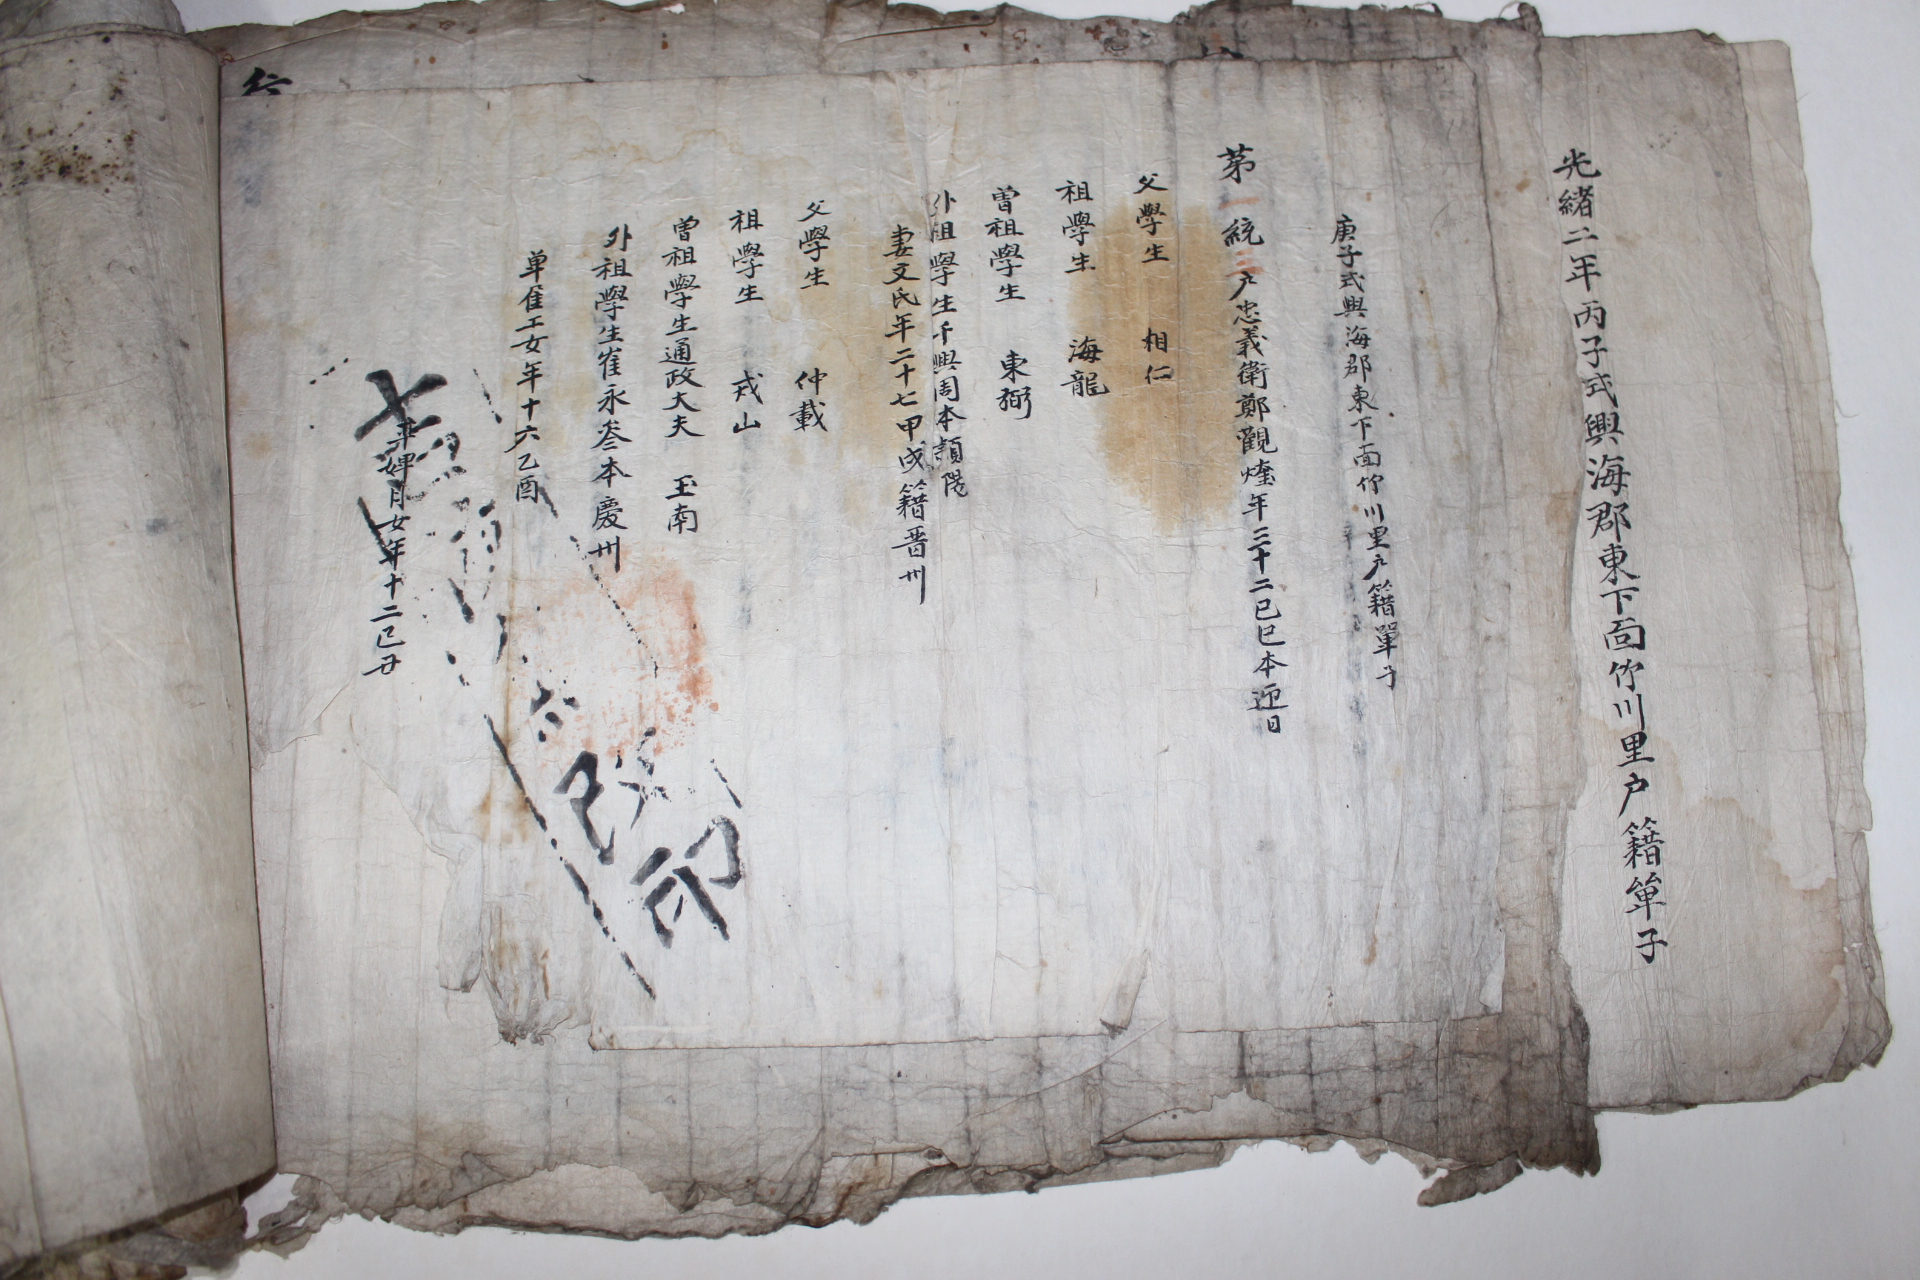 光緒二年丙子式興海郡東下面竹川里戶籍單子
庚子式興海郡東下面竹川里戶籍單子
第一統三戶忠義衛鄭觀㷜年三十二己巳本迎日
父學生 相仁
祖學生 海龍
曾祖學生 東弼
外祖學生千興周本潁陽
妻文氏年二十七甲戌籍晋州
父學生 仲載
祖學生 戎山
曾祖學生通政大夫 玉南
外祖學生崔永叁本慶州
单雇工女年十六乙酉
率婢月女年十二己丑
改印